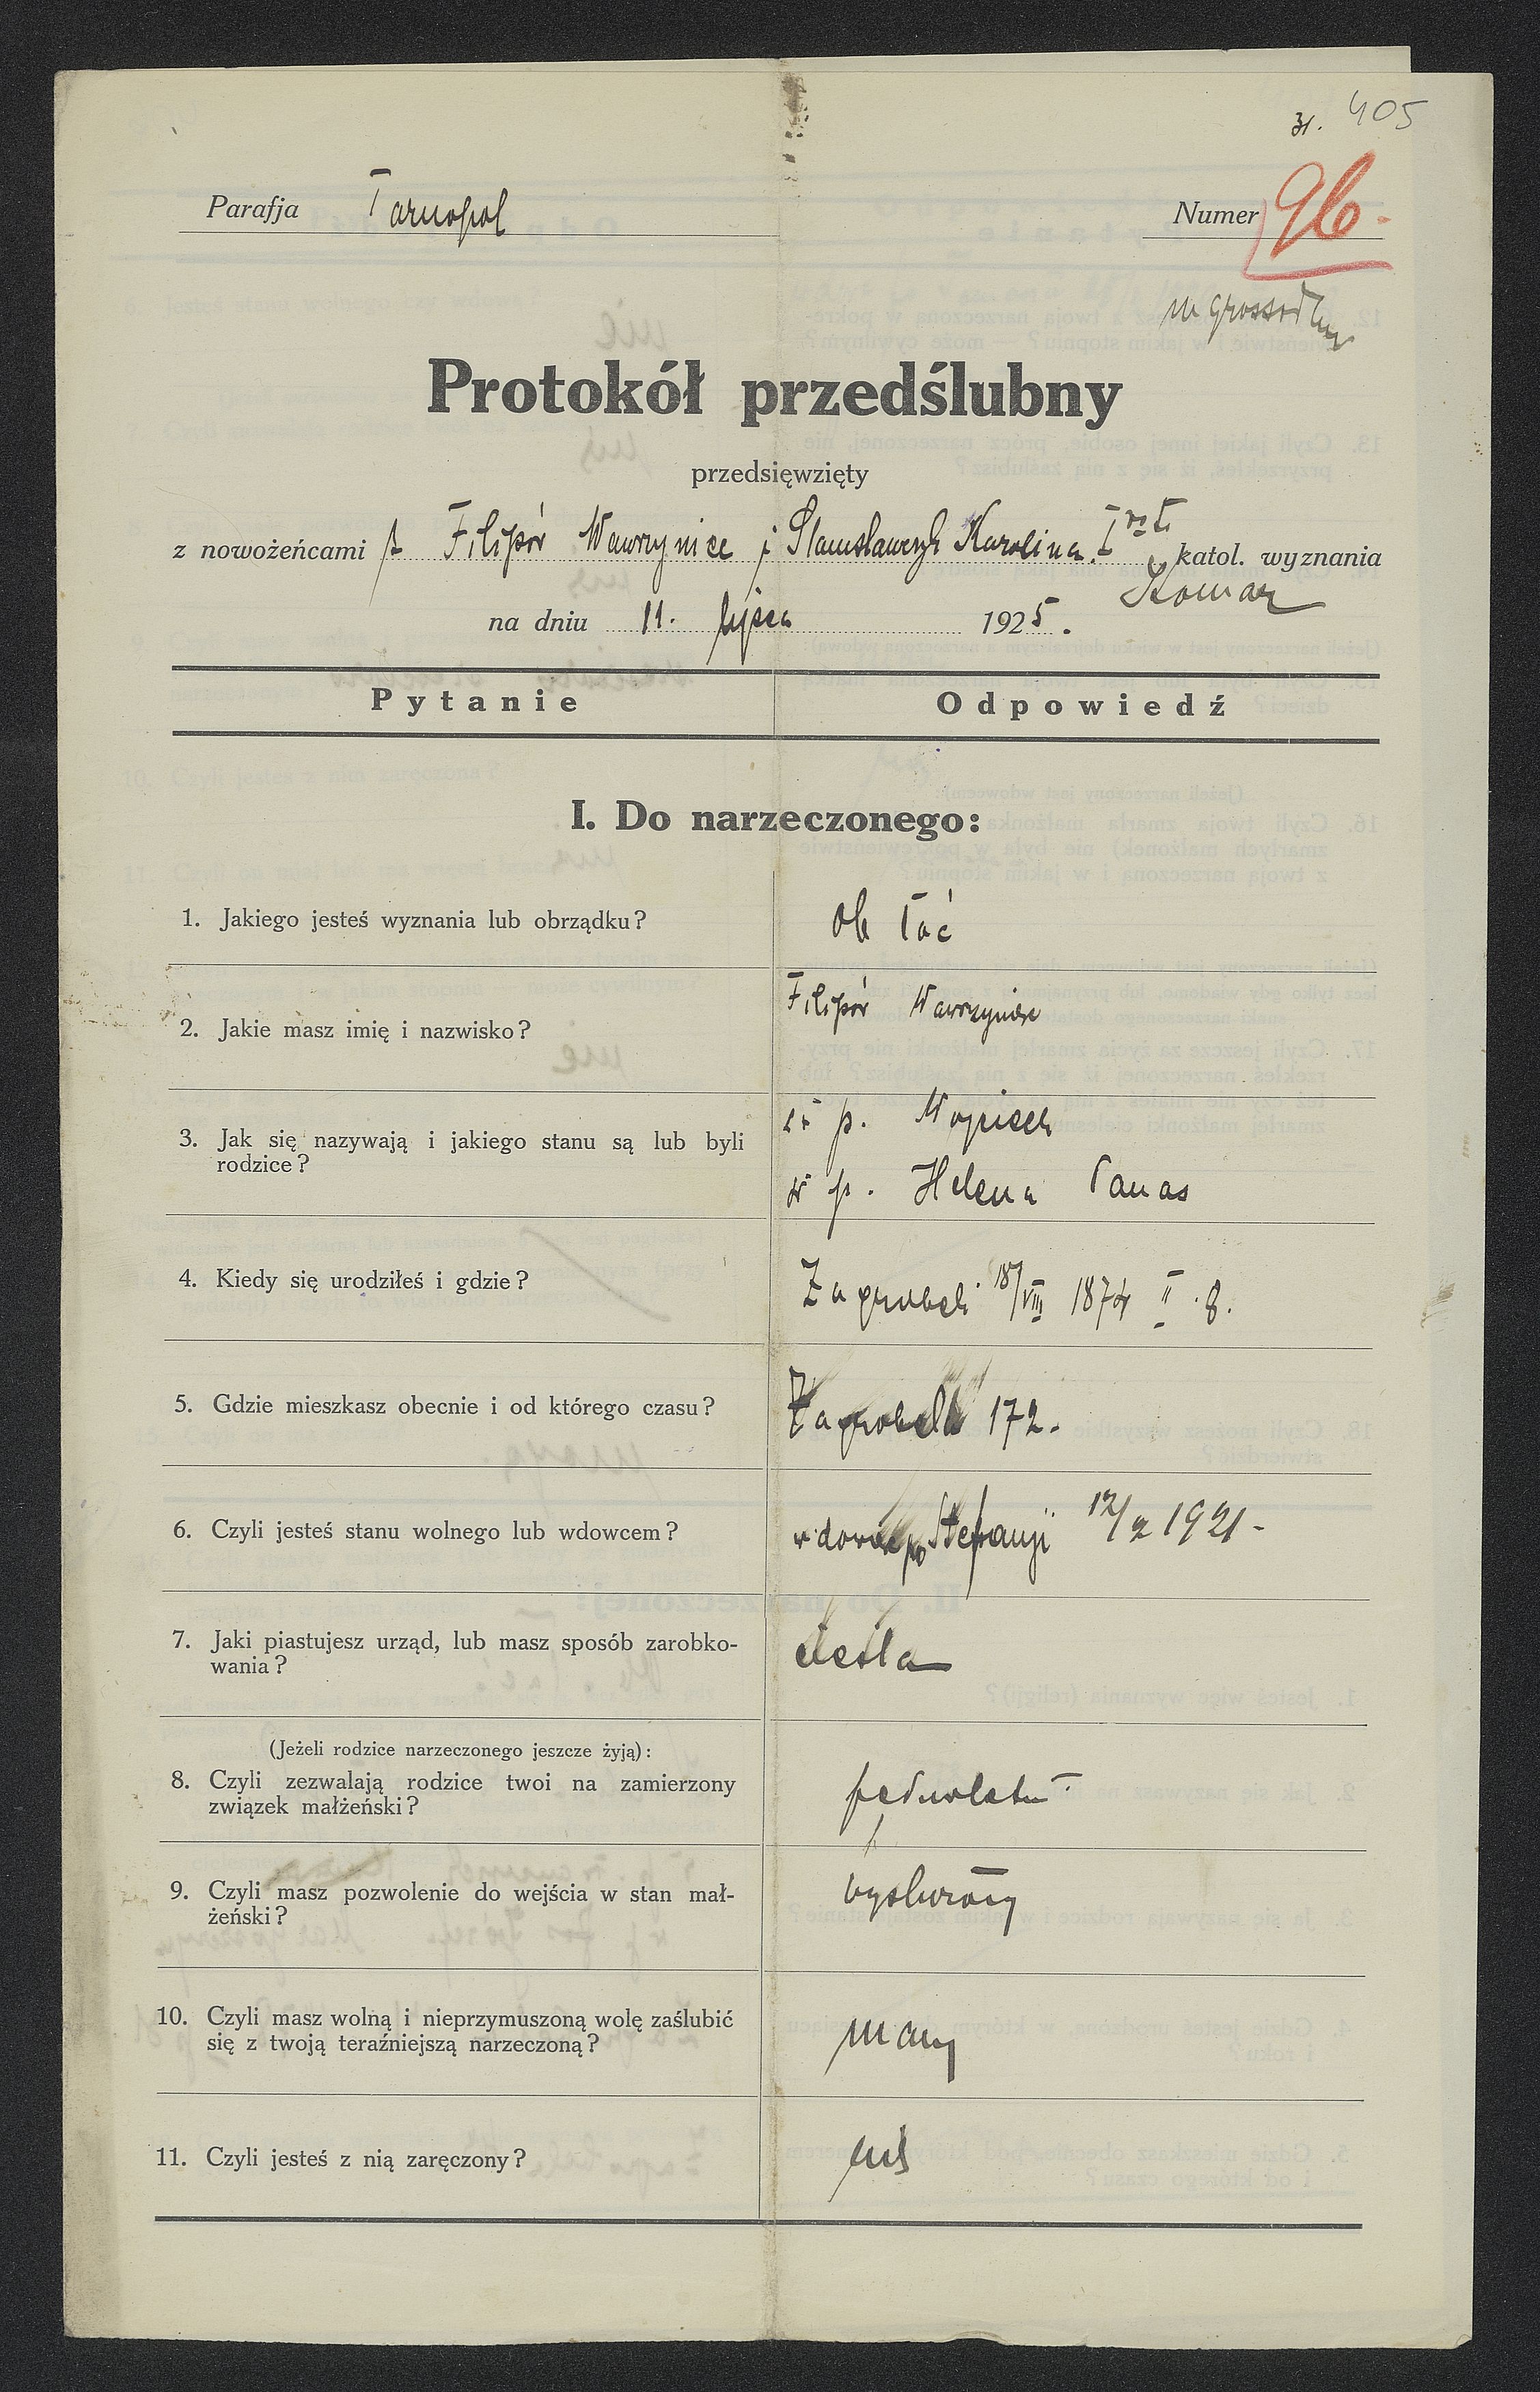 31. 405
Parafja Tarnopol
Numer 96.
Protokół przedślubny
przedsięwzięty
z nowożeńcami Filipów Wawrzyniec i Stanisławczyk Karolina. katol. wyznania
Komar
na dniu 11. lipca 1925.
Pytanie Odpowiedź
I. Do narzeczonego:
1. Jakiego jesteś wyznania lub obrządku? ob łać
2. Jakie masz imię i nazwisko? Filipów Wawrzyniec
3. Jak się nazywają i jakiego stanu są lub byli rodzice? ś p. Wojciech
ś p. Helena Panas
4. Kiedy się urodziłeś i gdzie? Zagrobeli 18/VIII 1874 II . 8.
5. Gdzie mieszkasz obecnie i od którego czasu? Zagrobela 172.
6. Czyli jesteś stanu wolnego lub wdowcem? wdowiec po Stefanji 12/2 1921 -
7. Jaki piastujesz urząd, lub masz sposób zarobko-
wania? cieśla
(Jeżeli rodzice narzeczonego jeszcze żyją):
8. Czyli zezwalają rodzice twoi na zamierzony
związek małżeński? pełnoletni
9. Czyli masz pozwolenie do wejścia w stan mał-
żeński? wysłużony
10. Czyli masz wolną i nieprzymuszoną wolę zaślubić
się z twoją teraźniejszą narzeczoną? mam
11. Czyli jesteś z nią zaręczony?